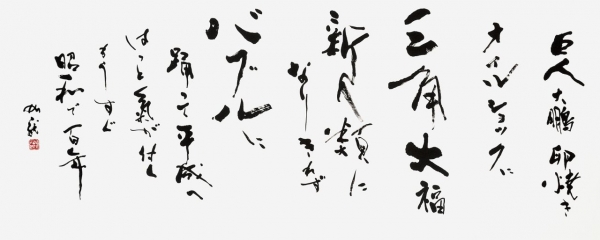 巨人大鵬卵焼き
オイルショックに
三角大福
新人類に
なりきれず
バブルに
踊って平成へ
はっと氣が付く
もうすぐ
昭和で百年